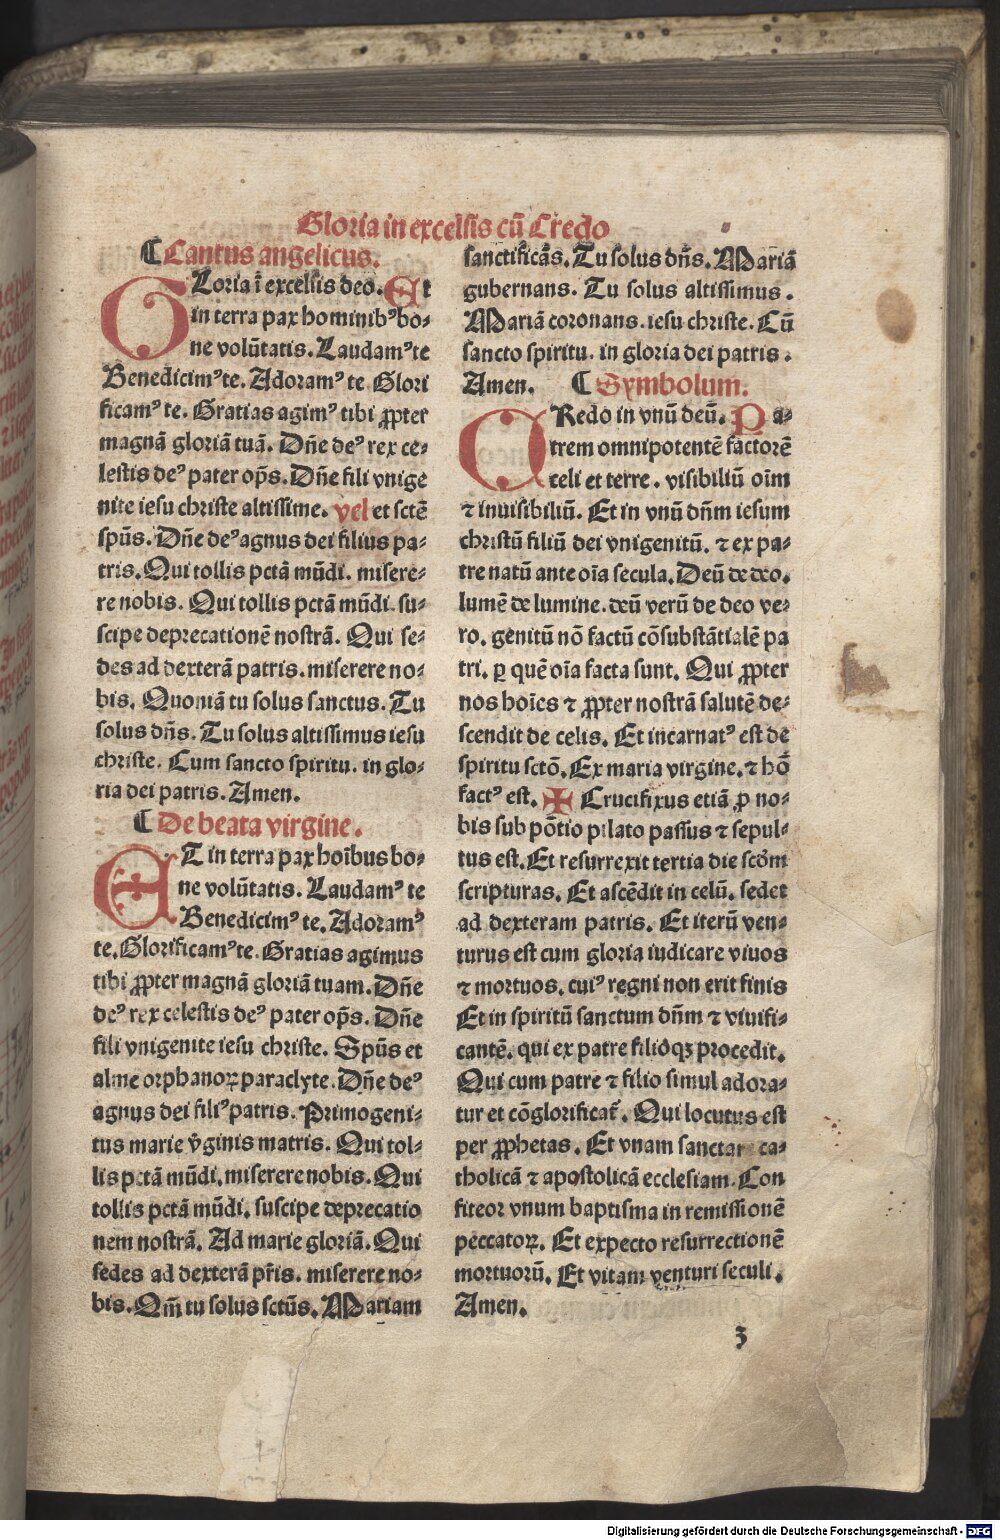 Gloria in excelsis cū Credo
¶ Cantus angelicus.
GLoria ī excelsis deo. Et
in terra pax hominibꝰ bo⸗
ne volūtatis. Laudamꝰ te
Benedicimꝰ te. Adoramꝰ te Glori
ficamꝰ te. Gratias agimꝰ tibi ꝓpter
magnā gloriā tuā. Dn̄e deꝰ rex ce⸗
lestis deꝰ pater op̄s. Dn̄e fili vnige
nite iesu christe altissime. vel et sctē
spūs. Dn̄e deꝰ agnus dei filius pa⸗
tris. Qui tollis pctā mūdi. misere⸗
re nobis. Qui tollis pctā mūdi. su⸗
scipe deprecationē nostrā. Qui se⸗
des ad dexterā patris. miserere no⸗
bis. Quoniā tu solus sanctus. Tu
solus dn̄s. Tu solus altissimus iesu
christe. Cum sancto spiritu. in glo⸗
ria dei patris. Amen.
¶ De beata virgine.
ET in terra pax hoībus bo⸗
ne volūtatis. Laudamꝰ te
Benedicimꝰ te. Adoramꝰ
te. Glorificamꝰ te. Gratias agimus
tibi ꝓpter magnā gloriā tuam. Dn̄e
deꝰ rex celestis deꝰ pater op̄s. Dn̄e
fili vnigenite iesu christe. Spūs et
alme orphanoꝝ paraclyte. Dn̄e deꝰ
agnus dei filiꝰ patris. Primogeni⸗
tus marie v̄ginis matris. Qui tol⸗
lis pctā mūdi. miserere nobis. Qui
tollis pctā mūdi. suscipe deprecatio
nem nostrā. Ad marie gloriā. Qui
sedes ad dexterā pr̄is. miserere no⸗
bis. Qm̄ tu solus sctūs. Mariam
sanctificās. Tu solus dn̄s. Mariā
gubernans. Tu solus altissimus.
Mariā coronans. iesu christe. Cū
sancto spiritu. in gloria dei patris.
Amen. ¶ Symbolum.
CRedo in vnū deū. Pa⸗
trem omnipotentē factorē
celi et terre. visibiliū oīm
⁊ inuisibiliū. Et in vnū dn̄m iesum
christū filiū dei vnigenitū. ⁊ ex pa⸗
tre natū ante oīa secula. Deū de deo.
lumē de lumine. deū verū de deo ve⸗
ro. genitū nō factū cōsubstātialē pa
tri. ꝑ quē oīa facta sunt. Qui ꝓpter
nos hoīes ⁊ ꝓpter nostrā salutē de⸗
scendit de celis. Et incarnatꝰ est de
spiritu sctō. Ex maria virgine. ⁊ hō
factꝰ est. ✠ Crucifixus etiā ꝓ no⸗
bis sub pōtio pilato passus ⁊ sepul⸗
tus est. Et resurrexit tertia die scōm
scripturas. Et ascēdit in celū. sedet
ad dexteram patris. Et iterū ven⸗
turus est cum gloria iudicare viuos
⁊ mortuos. cuiꝰ regni non erit finis
Et in spiritū sanctum dn̄m ⁊ viuifi⸗
cantē. qui ex patre filioqꝫ procedit.
Qui cum patre ⁊ filio simul adora⸗
tur et cōglorificat̄. Qui locutus est
per ꝓphetas. Et vnam sanctam ca⸗
tholicā ⁊ apostolicā ecclesiam. Con
fiteor vnum baptisma in remissionē
peccatoꝝ. Et expecto resurrectionē
mortuorū. Et vitam venturi seculi.
Amen.
3
Digitalisierung gefördert durch die Deutsche Forschungsgemeinschaft - DFG